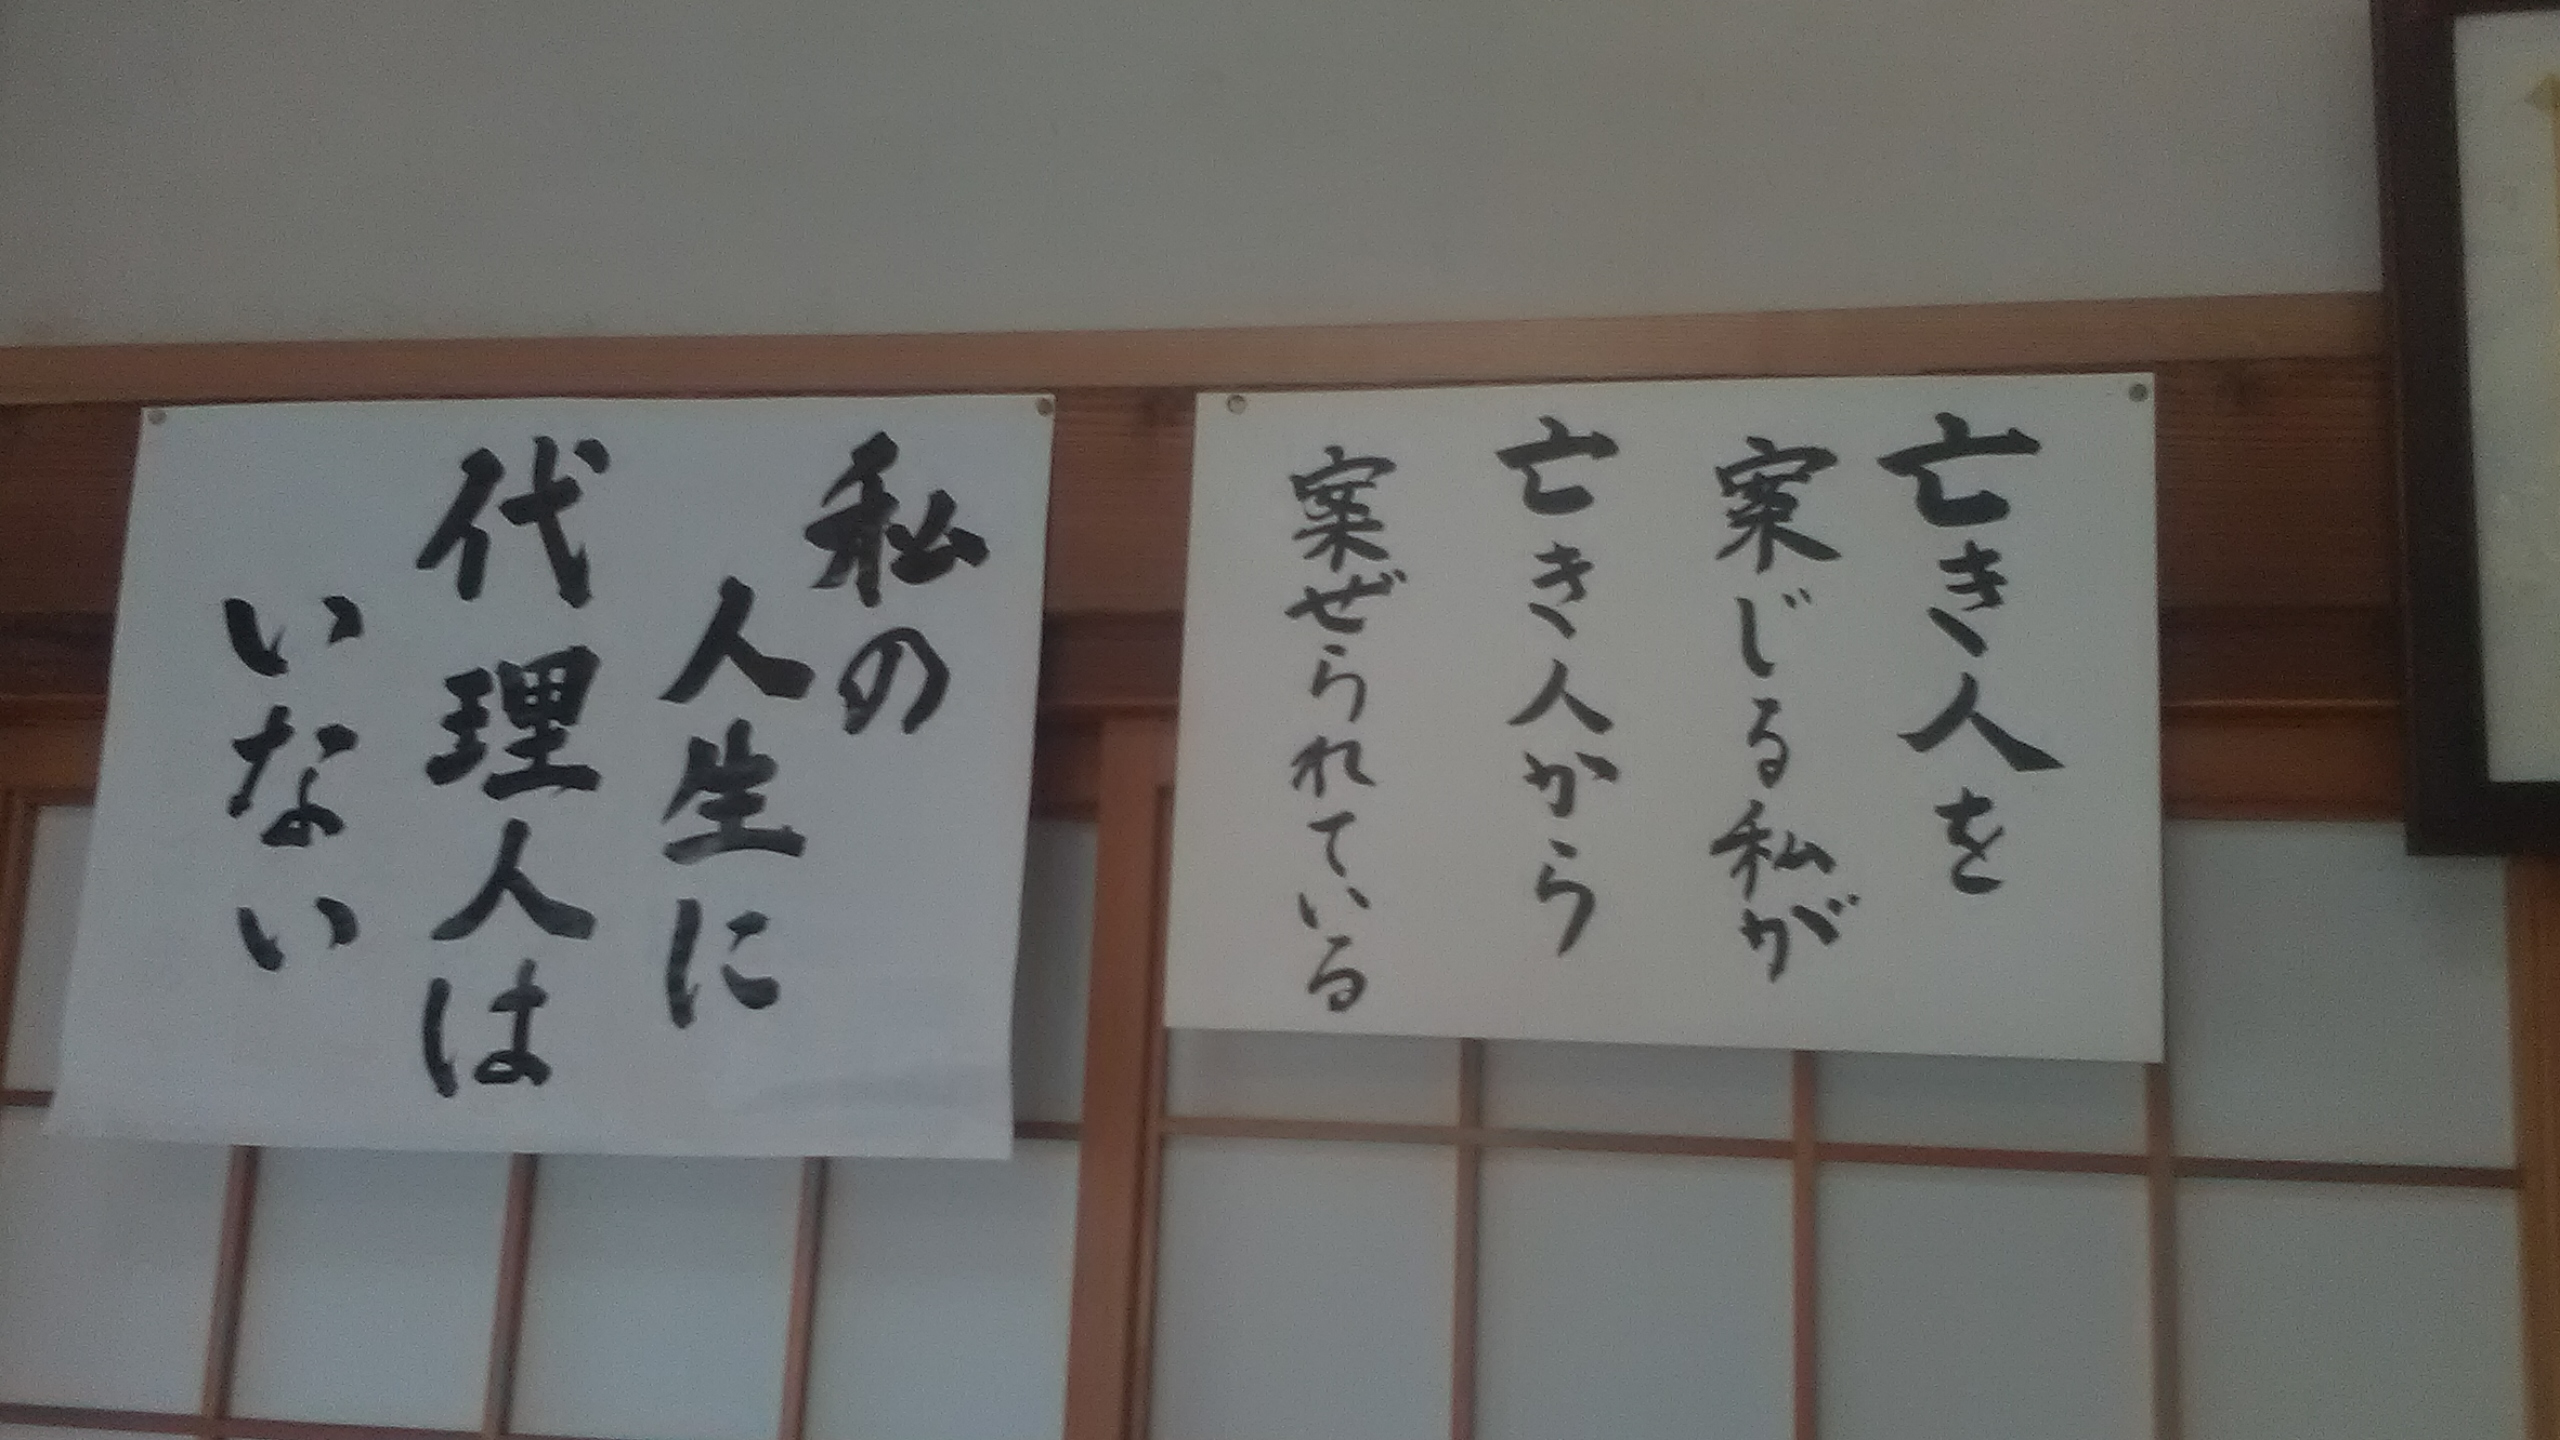 亡き人を
案じる私が
亡き人から
案ぜられている
私の
人生に
代理人は
いない